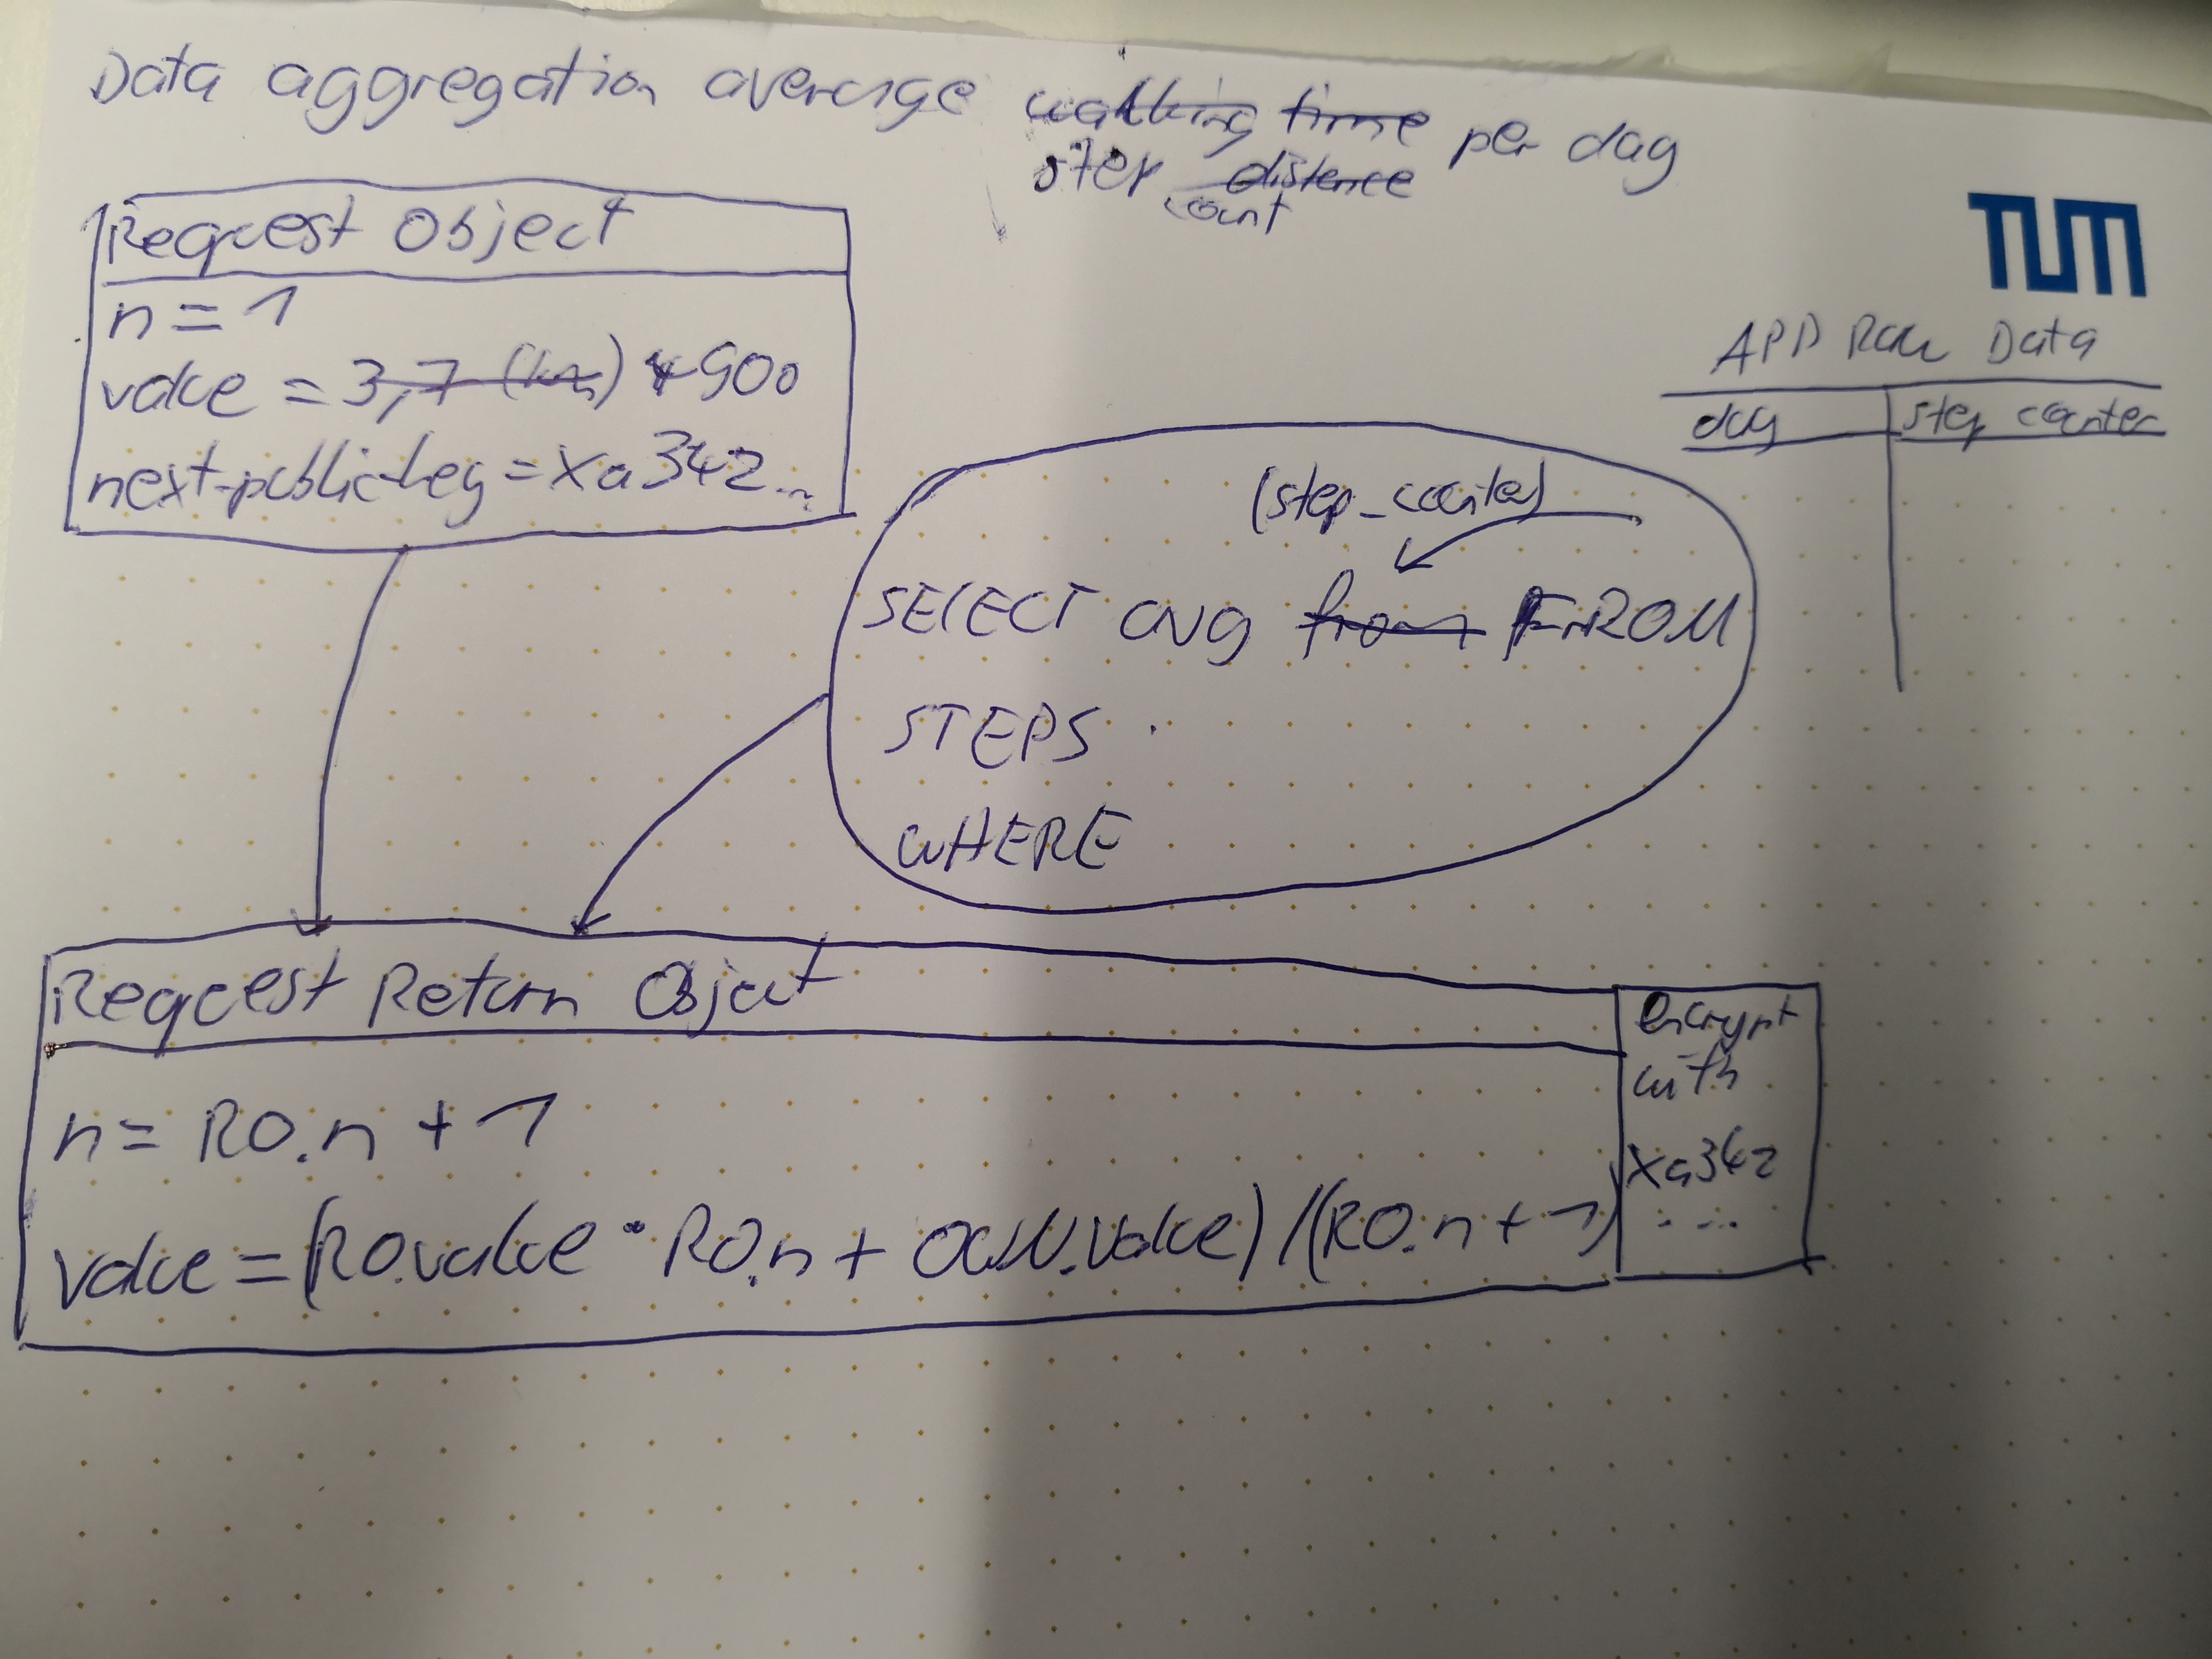 Data aggregation average walking time per day
step distance
count
Request Object
n = 1
value = 3,7 (km) 4900
next-public-key = xa342...
TUM
APP Raw Data
day step counter
(step_counter)
SELECT avg from FROM
STEPS
WHERE
Request Return Object
n = RO.n + 1
value = (RO.value · RO.n + OWN.value) / (RO.n + 1)
encrypt
with
xa342
...